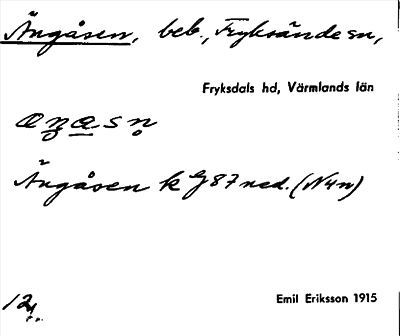 Ängåsen, beb., Fryksände sn,
Fryksdals hd, Värmlands län
Ängåsen k
87 ned. (N4n)
Emil Eriksson 1915